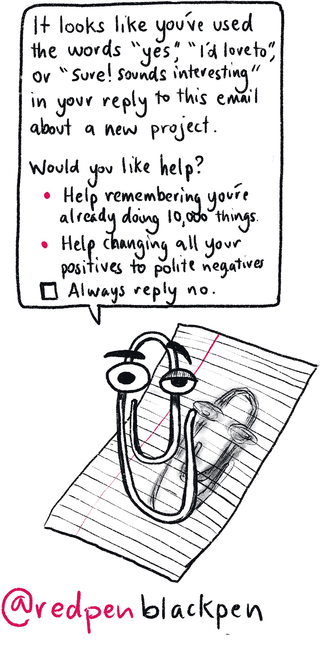 It looks like you've used
the words "yes", "I'd love to",
or "Sure! Sounds interesting"
in your reply to this email
about a new project.
Would you like help?
• Help remembering you're
already doing 10,000 things.
• Help changing all your
positives to polite negatives
Always reply no.
@redpenblackpen